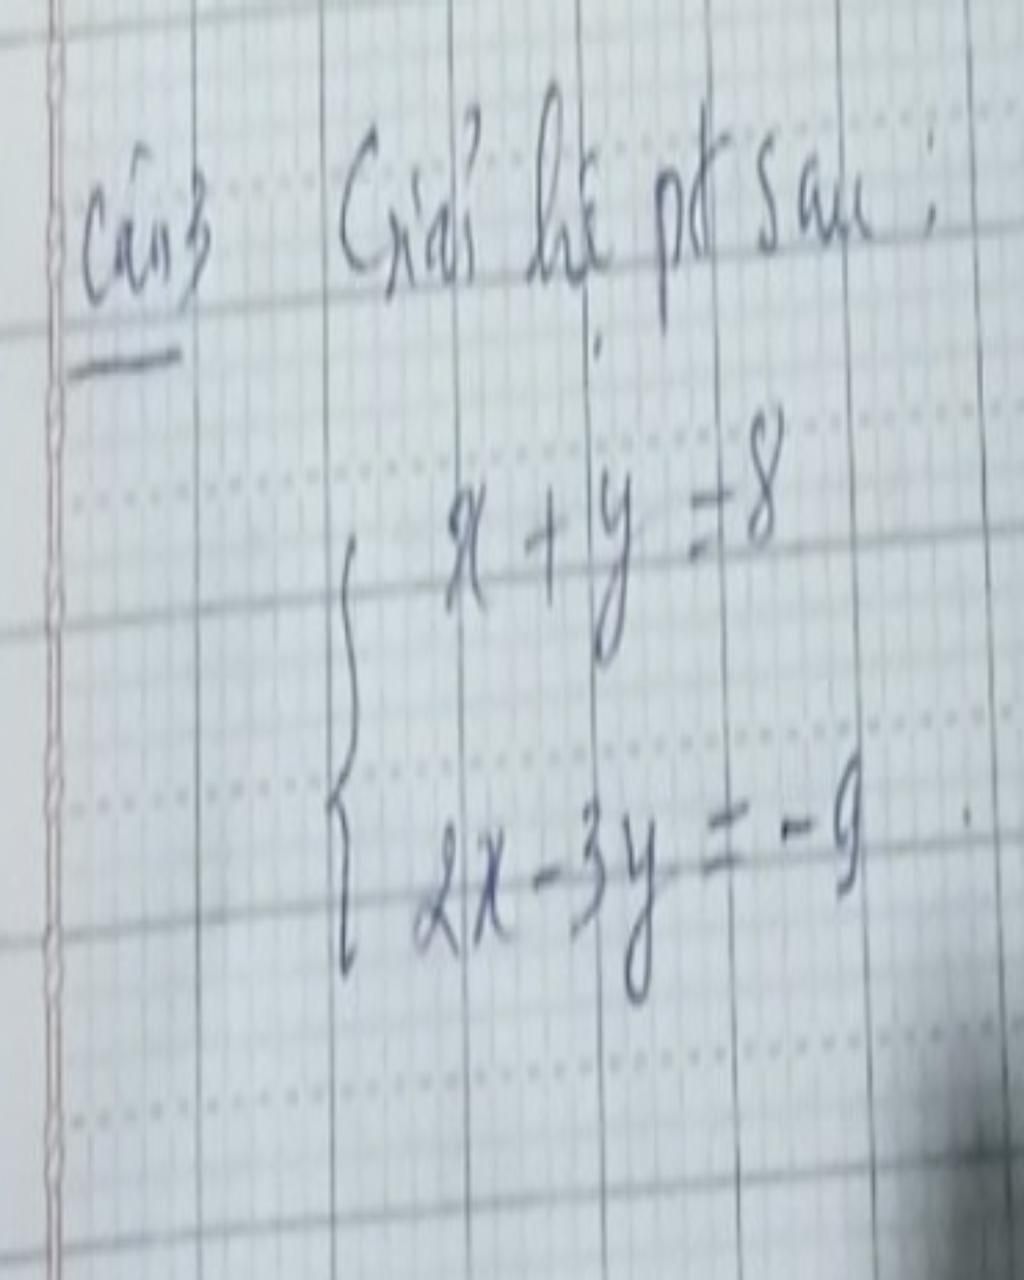 Câu 3 Giải hệ pt sau :
x + y = 8
2x - 3y = -9